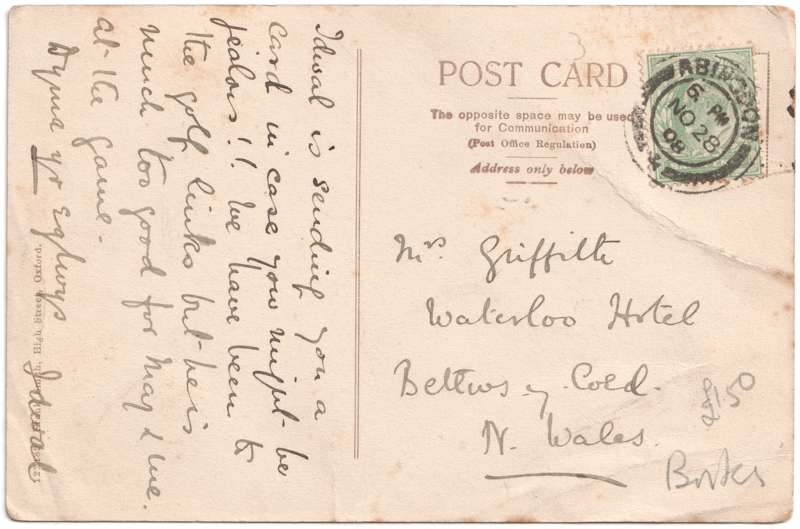 Idwal is sending you a
card in case you might be
jealous!! We have been to
the golf links but he is
much too good for May & me.
at the game.
Dyma yr Eglwys
Idwal
High Street, Oxford.
POST CARD
The opposite space may be used
for Communication
(Post Office Regulation)
Address only below
ABINGDON
5. PM
NO 28
08
Mrs Griffith
Waterloo Hotel
Bettws-y-Coed.
N. Wales.
£1.50
Berks